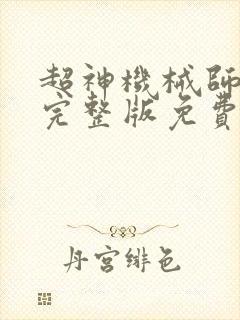 超神機械師
完整版免費
丹宮緋色